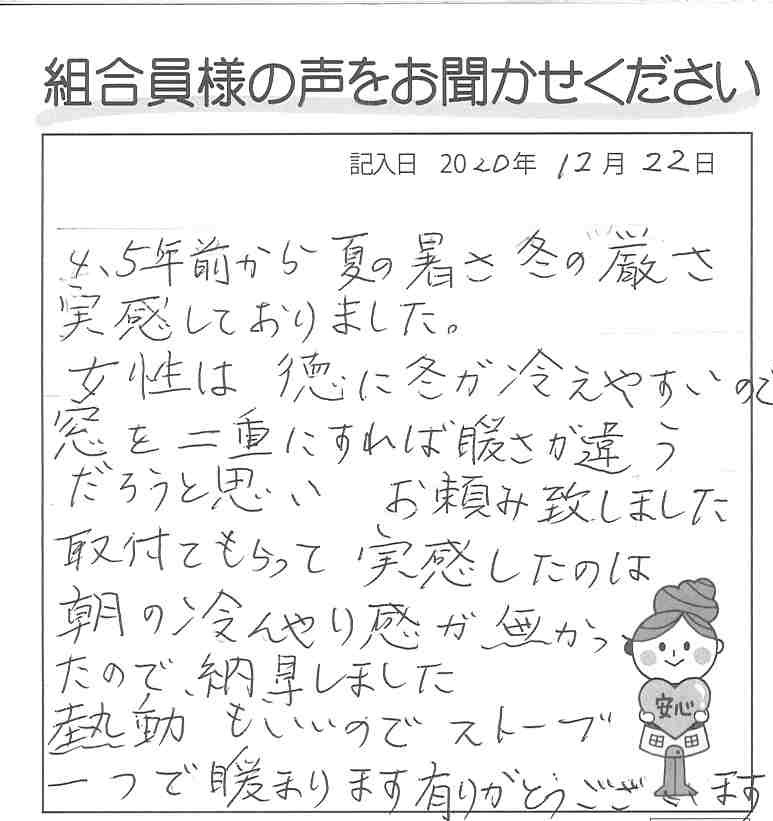 組合員様の声をお聞かせください
記入日 2020年 12月 22日
4、5年前から 夏の暑さ 冬の厳さ
実感しておりました。
女性は 徳に冬が冷えやすいので
窓を二重にすれば暖さが違う
だろうと思い お頼み致しました
取付てもらって 実感したのは
朝の冷んやり感が無かっ
たので、納得しました
熱動もいいのでストーブ
一つで暖まります有りがとうございます
安心